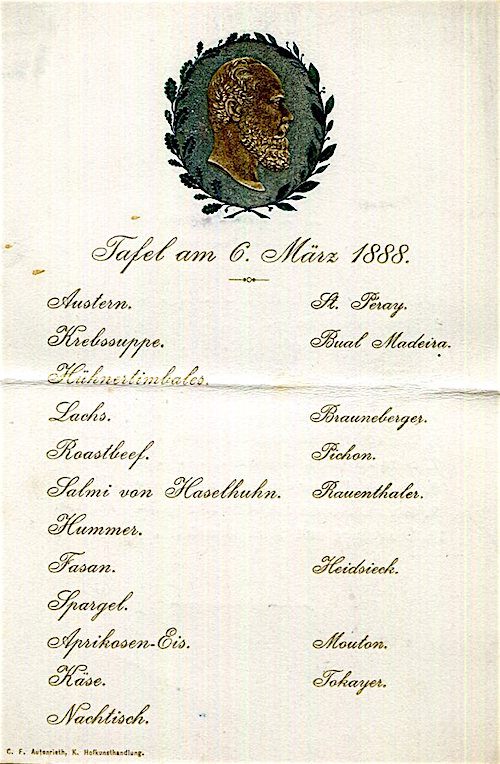 Tafel am 6. März 1888.
Austern. St. Péray.
Krebssuppe. Bual Madeira.
Hühnertimbales.
Lachs. Brauneberger.
Roastbeef. Pichon.
Salmi von Haselhuhn. Rauenthaler.
Hummer.
Fasan. Heidsieck.
Spargel.
Aprikosen-Eis. Mouton.
Käse. Tokayer.
Nachtisch.
C. F. Autenrieth, K. Hofkunsthandlung.